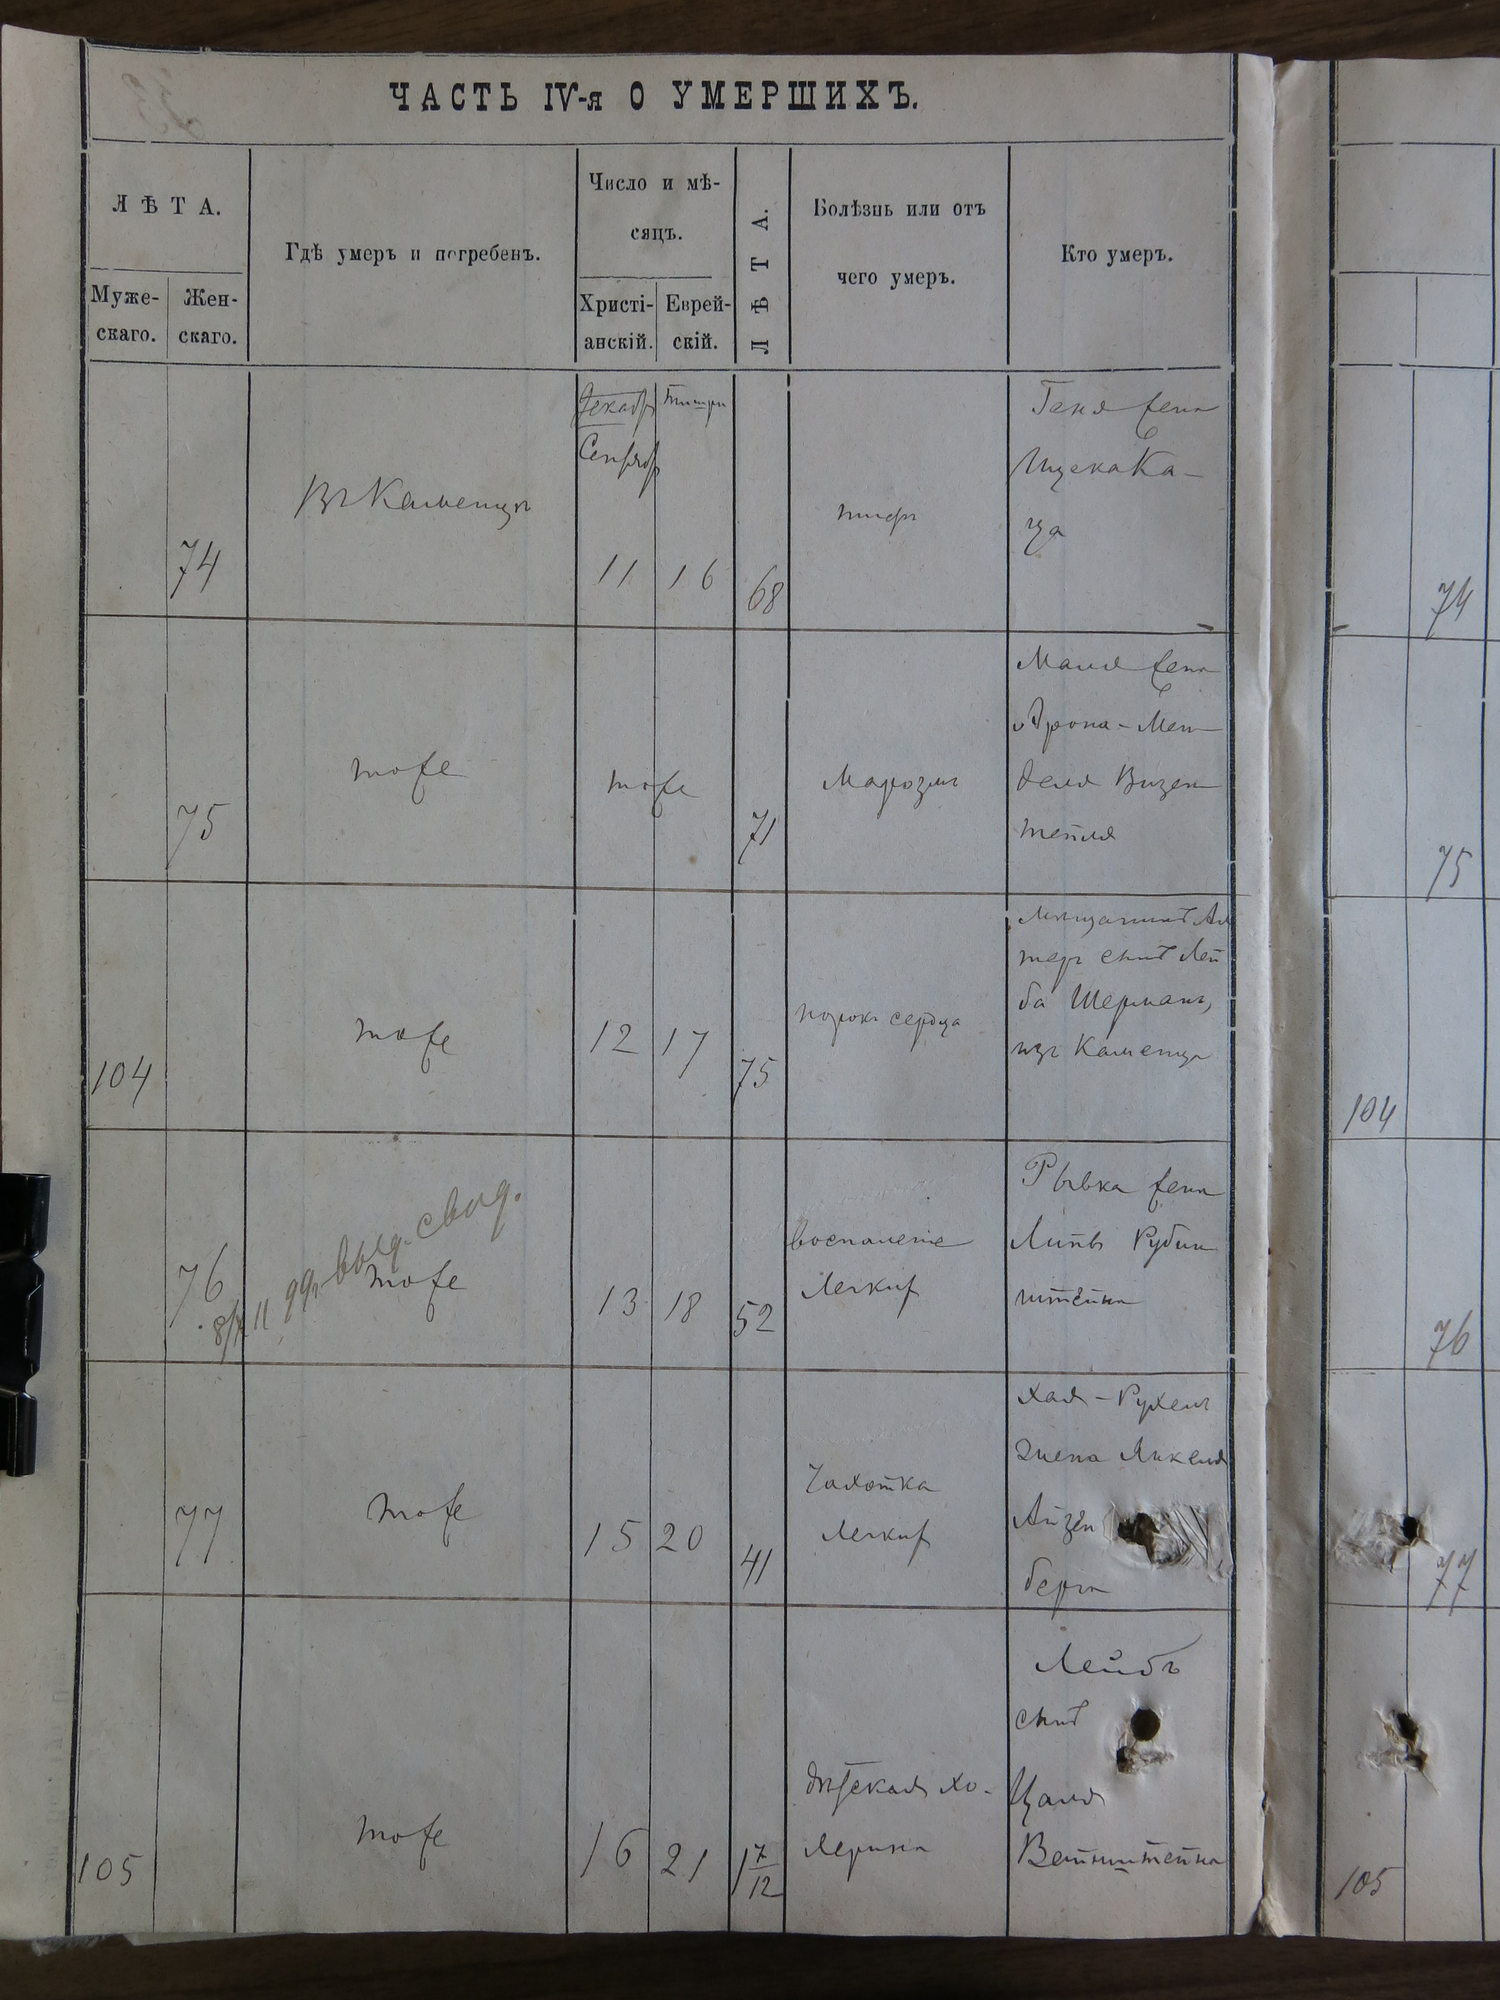 ЧАСТЬ IV-я О УМЕРШИХЪ.
ЛѢТА.
Муже-
скаго.
Жен-
скаго.
Гдѣ умеръ и погребенъ.
Число и мѣ-
сяцъ.
Христі-
анскій.
Еврей-
скій.
ЛѢТА.
Болѣзнь или отъ
чего умеръ.
Кто умеръ.
74
Въ Каменцѣ
Декабр
Сентябр
11
Тишри
16
68
тифъ
Геня жена
Ицека Ка-
ца
74
75
тоже
тоже
71
Маразмъ
Маля жена
Арона-Мен
деля Визен
тейля
75
104
тоже
12
17
75
порокъ сердца
Мещанинъ Ал
теръ сынъ Лей
ба Шерманъ,
изъ Каменца
104
76
выд. свид.
тоже
13
18
52
воспаленіе
Легкихъ
Рывка жена
Липы Рубин
штейна
76
77
тоже
15
20
41
Чахотка
Легкихъ
Хая-Рухель
жена Янкеля
Айзен
берга
77
105
тоже
16
21
1 7/12
дѣтская хо-
лерина
Лейбъ
сынъ
Цаля
Вейнштейна
105